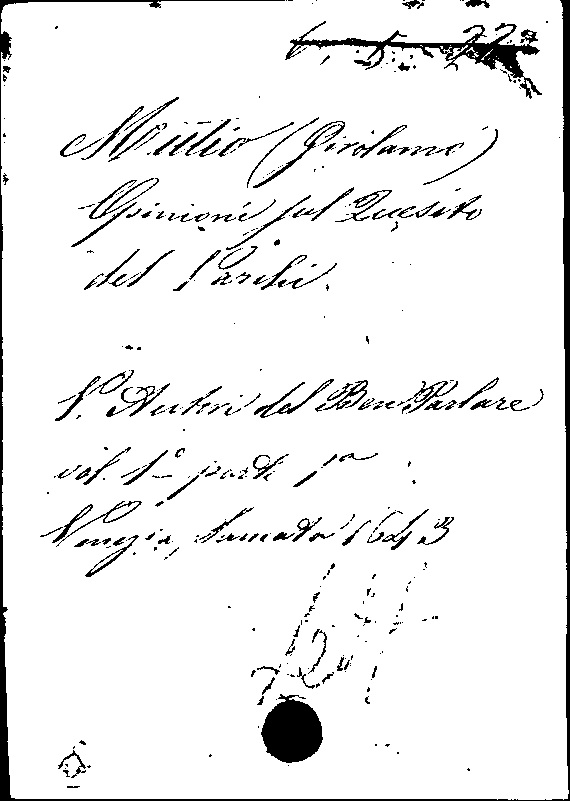 Mutio (Girolamo)
Opinione sul Quesito
del Varchi.
V. Autori del Ben Parlare
vol. 1º parte 1ª
Venezia, 1643